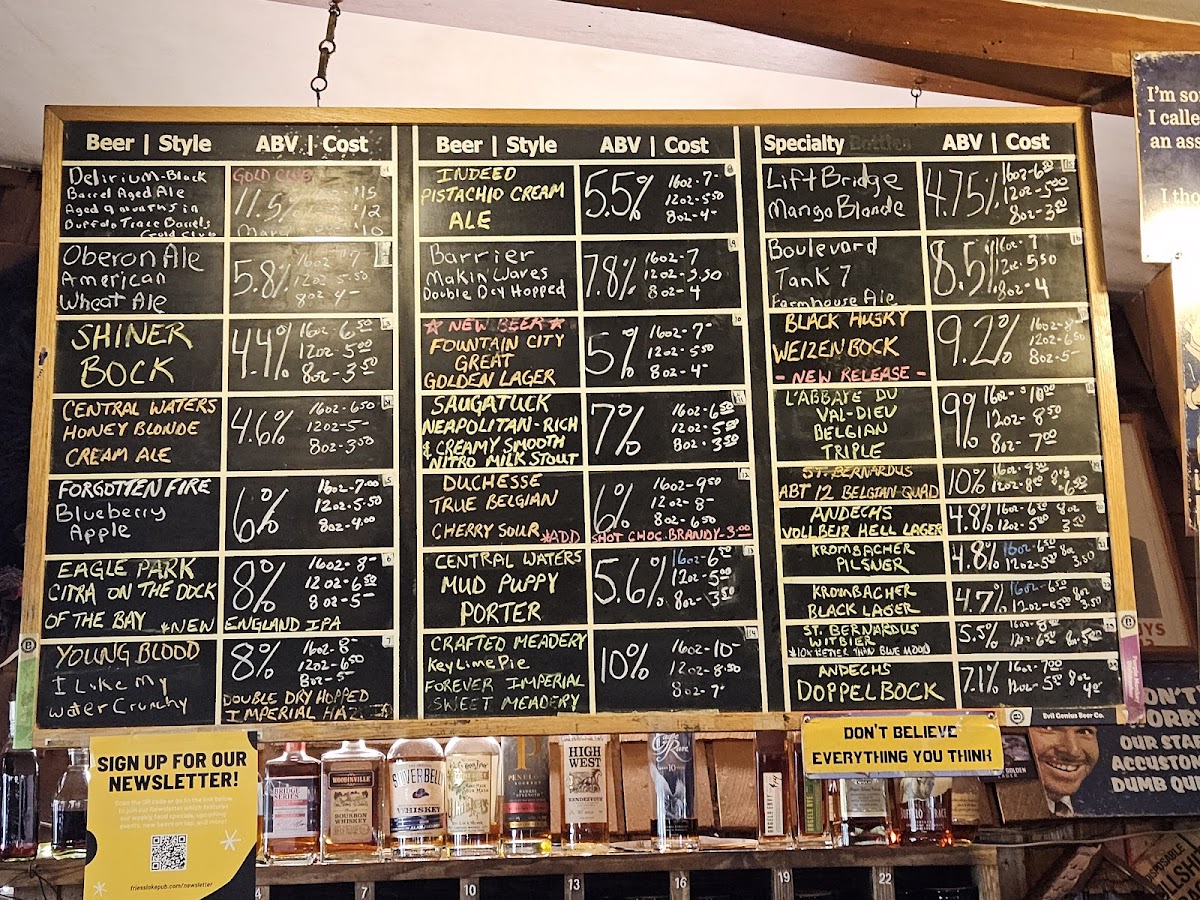 Beer | Style
ABV | Cost
Delirium-Black
Barrel Aged Ale
Aged 9 months in
Buffalo Trace Barrels
Gold Club
GOLD CLUB
11.5%
$15
$12
$10
Oberon Ale
American
Wheat Ale
5.8%
16oz - 7
12oz - 5.50
8oz - 4
SHINER
BOCK
4.4%
16oz - 6.50
12oz - 5.00
8oz - 3.50
CENTRAL WATERS
HONEY BLONDE
CREAM ALE
4.6%
16oz - 6.50
12oz - 5-
8oz - 3.50
FORGOTTEN FIRE
Blueberry
Apple
6%
16oz - 7.00
12oz - 5.50
8oz - 4.00
EAGLE PARK
CITRA ON THE DOCK
OF THE BAY *NEW
ENGLAND IPA
8%
16oz - 8-
12oz - 6.50
8oz - 5-
YOUNG BLOOD
I Like My
Water Crunchy
8%
16oz - 8-
12oz - 6.50
8oz - 5-
DOUBLE DRY HOPPED
IMPERIAL HAZY
Beer | Style
ABV | Cost
INDEED
PISTACHIO CREAM
ALE
5.5%
16oz - 7-
12oz - 5.50
8oz - 4-
Barrier
Makin' Waves
Double Dry Hopped
7.8%
16oz - 7
12oz - 5.50
8oz - 4
☆ NEW BEER ☆
FOUNTAIN CITY
GREAT
GOLDEN LAGER
5%
16oz - 7-
12oz - 5.50
8oz - 4-
SAUGATUCK
NEAPOLITAN-RICH
& CREAMY SMOOTH
NITRO MILK STOUT
7%
16oz - 6.50
12oz - 5.00
8oz - 3.50
DUCHESSE
TRUE BELGIAN
CHERRY SOUR *ADD
SHOT CHOC. BRANDY - 3.00
6%
16oz - 9.50
12oz - 8-
8oz - 6.50
CENTRAL WATERS
MUD PUPPY
PORTER
5.6%
16oz - 6.50
12oz - 5.00
8oz - 3.50
CRAFTED MEADERY
Key Lime Pie
FOREVER IMPERIAL
SWEET MEADERY
10%
16oz - 10-
12oz - 8.50
8oz - 7-
Specialty Bottles
ABV | Cost
Lift Bridge
Mango Blonde
4.75%
16oz - 6.50
12oz - 5.00
8oz - 3.50
Boulevard
Tank 7
Farmhouse Ale
8.5%
16oz - 7
12oz - 5.50
8oz - 4
BLACK HUSKY
WEIZEN BOCK
- NEW RELEASE -
9.2%
16oz - 8-
12oz - 6.50
8oz - 5-
L'ABBAYE DU
VAL-DIEU
BELGIAN
TRIPLE
9%
16oz - 10.00
12oz - 8.50
8oz - 7.00
ST. BERNARDUS
ABT 12 BELGIAN QUAD
10%
ANDECHS
VOLLBEIR HELL LAGER
4.8%
KROMBACHER
PILSNER
4.8%
KROMBACHER
BLACK LAGER
4.7%
ST. BERNARDUS
WITBIER
*10X BETTER THAN BLUE MOON
5.5%
ANDECHS
DOPPELBOCK
7.1%
16oz - 7.00
I'm so
I calle
an ass
I tho
SIGN UP FOR OUR
NEWSLETTER!
Scan the QR code or go to the link below
to join our Newsletter which features
our weekly food specials, upcoming
events, new beers on tap, and more!
friesslakepub.com/newsletter
DON'T BELIEVE
EVERYTHING YOU THINK
Evil Genius Beer Co.
DON'T
WORRY
OUR STAFF
ACCUSTOM
DUMB QU
BRIDGE
SERIES
WOODINVILLE
BOURBON
WHISKEY
SILVERBELLY
WHISKEY
PENELOPE
HIGH
WEST
RENDEZVOUS
Eagle Rare
10
BUFFALO TRACE
4
7
10
13
16
19
22